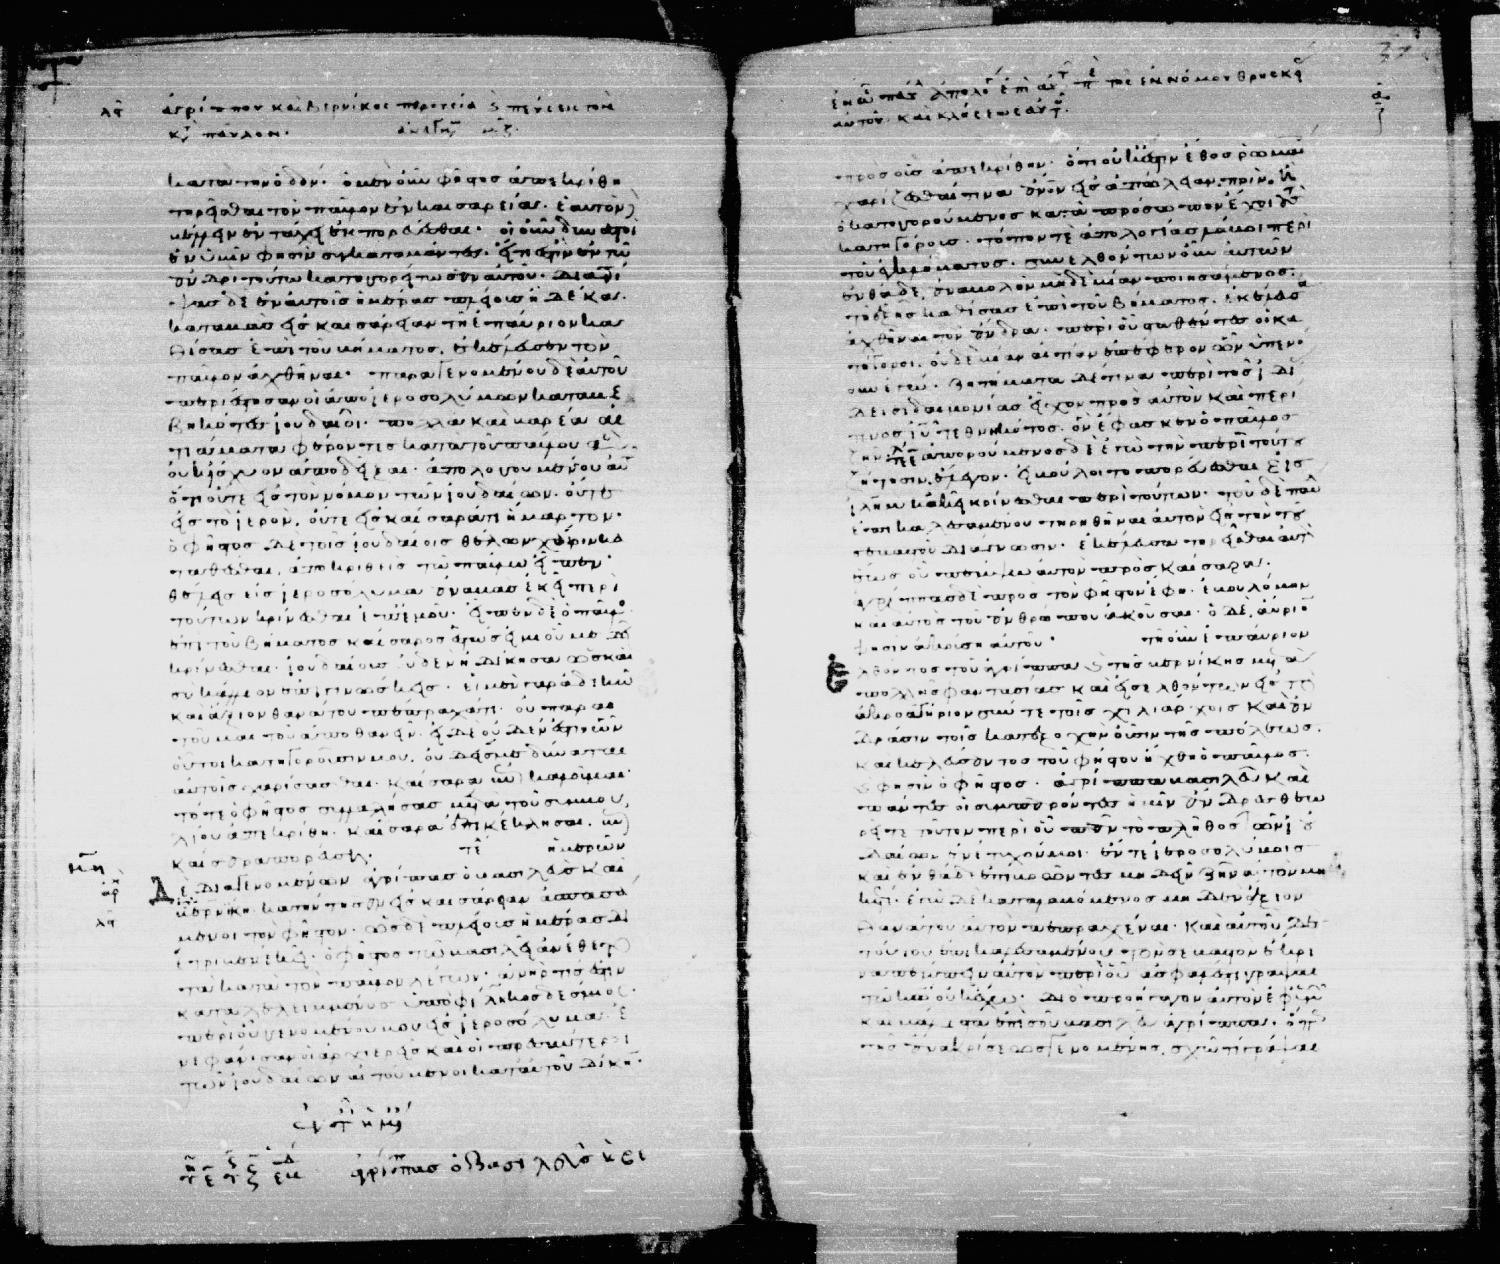 λς ἀγρίππου καὶ βερνίκης παρουσία
κατὰ παύλου.
κατὰ τὴν ὁδόν. ὁ μὲν οὖν φῆστος ἀπεκρίθη
τηρεῖσθαι τὸν παῦλον ἐν καισαρείαι. ἑαυτὸν
μέλλειν ἐν τάχει ἐκπορεύεσθαι. οἱ οὖν δυνατοὶ
ἐν ὑμῖν φησὶν συγκαταβάντες. εἴ τι ἐστὶν ἐν τῶ
ἀνδρὶ τούτω κατηγορείτωσαν αὐτοῦ. διατρί
ψας δὲ ἐν αὐτοῖς ἡμέρας πλείους ἢ δέκα.
καταβὰς εἰς καισάρειαν τῆ ἐπαύριον κα
θίσας ἐπὶ τοῦ βήματος. ἐκέλευσεν τὸν
παῦλον ἀχθῆναι. παραγενομένου δὲ αὐτοῦ
περιέστησαν οἱ ἀπὸ ἱεροσολύμων καταβε
βηκότες ἰουδαῖοι. πολλὰ καὶ βαρέα αἰ
τιώματα φέροντες κατὰ τοῦ παύλου ἃ
οὐκ ἴσχυον ἀποδεῖξαι. ἀπολογουμένου αὐτοῦ
ὅτι οὔτε εἰς τὸν νόμον τῶν ἰουδαίων. οὔτε
εἰς τὸ ἱερὸν. οὔτε εἰς καίσαρά τι ἥμαρτον.
ὁ φῆστος δὲ τοῖς ἰουδαίοις θέλων χάριν κα
ταθέσθαι. ἀποκριθεὶς τῶ παύλω εἶπεν
θέλεις εἰς ἱεροσόλυμα ἀναβὰς ἐκεῖ περὶ
τούτων κρίνεσθαι ἐπ' ἐμοῦ. εἶπεν δὲ ὁ παῦλος
ἐπὶ τοῦ βήματος καίσαρος ἑστώς εἰμι οὗ με δεῖ
κρίνεσθαι. ἰουδαίους οὐδὲν ἠδίκησα ὡς καὶ
σὺ κάλλιον ἐπιγινώσκεις. εἰ μὲν γὰρ ἀδικῶ
καὶ ἄξιον θανάτου πέπραχά τι. οὐ παραι
τοῦμαι τὸ ἀποθανεῖν. εἰ δὲ οὐδέν ἐστιν ὧν
οὗτοι κατηγοροῦσίν μου. οὐδείς με δύναται
αὐτοῖς χαρίσασθαι. καίσαρα ἐπικαλοῦμαι.
τότε ὁ φῆστος συλλαλήσας μετὰ τοῦ συμβου
λίου ἀπεκρίθη. καίσαρα ἐπικέκλησαι. ἐπὶ
καίσαρα πορεύσει. τε ἡμερῶν
δὲ διαγενομένων ἀγρίππας ὁ βασιλεὺς καὶ
βερνίκη κατήντησαν εἰς καισάρειαν ἀσπασά
μενοι τὸν φῆστον. ὡς δὲ πλείους ἡμέρας δι
έτριβεν ἐκεῖ. ὁ φῆστος τῶ βασιλεῖ ἀνέθετο
τὰ κατὰ τὸν παῦλον λέγων. ἀνήρ τις ἐστὶν
καταλελειμμένος ὑπὸ φίληκος δέσμιος.
περὶ οὗ γενομένου μου εἰς ἱεροσόλυμα. ἐ
νεφάνισαν οἱ ἀρχιερεῖς καὶ οἱ πρεσβύτεροι
τῶν ἰουδαίων αἰτούμενοι κατ' αὐτοῦ δίκην.
ἀγρίππας ὁ βασιλεὺς κ βερ
πρὸς οὓς ἀπεκρίθην. ὅτι οὐκ ἔστιν ἔθος ῥωμαίοις
χαρίζεσθαί τινα ἄνθρωπον εἰς ἀπώλειαν. πρὶν ἢ
ὁ κατηγορούμενος κατὰ πρόσωπον ἔχοι τοὺς
κατηγόρους. τόπον τε ἀπολογίας λάβοι περὶ
τοῦ ἐγκλήματος. συνελθόντων οὖν αὐτῶν
ἐνθάδε. ἀναβολὴν μηδεμίαν ποιησάμενος.
τῆ ἑξῆς καθίσας ἐπὶ τοῦ βήματος. ἐκέλευσα
ἀχθῆναι τὸν ἄνδρα. περὶ οὗ σταθέντες οἱ κα
τήγοροι. οὐδεμίαν αἰτίαν ἐπέφερον ὧν ὑπενό
ουν ἐγώ. ζητήματα δέ τινα περὶ τῆς ἰδίας
δεισιδαιμονίας εἶχον πρὸς αὐτὸν καὶ περί
τινος ἰῦ τεθνηκότος. ὃν ἔφασκεν ὁ παῦλος
ζῆν. ἀπορούμενος δὲ ἐγὼ τὴν περὶ τούτου
ζήτησιν. ἔλεγον. εἰ βούλοιτο πορεύεσθαι εἰς
ἱλημ κἀκεῖ κρίνεσθαι περὶ τούτων. τοῦ δὲ παύλου
ἐπικαλεσαμένου τηρηθῆναι αὐτὸν εἰς τὴν τοῦ
σεβαστοῦ διάγνωσιν. ἐκέλευσα τηρεῖσθαι αὐτὸν
ἕως οὗ πέμψω αὐτὸν πρὸς καίσαρα.
ἀγρίππας δὲ πρὸς τὸν φῆστον ἔφη. ἐβουλόμην
καὶ αὐτὸς τοῦ ἀνθρώπου ἀκοῦσαι. ὁ δὲ. αὔριον
φησιν ἀκούση αὐτοῦ. τῆ οὖν ἐπαύριον
ἐλθόντος τοῦ ἀγρίππα καὶ τῆς βερνίκης μετὰ
πολλῆς φαντασίας καὶ εἰσελθόντων εἰς τὸ
ἀκροατήριον σύν τε τοῖς χιλιάρχοις καὶ ἀν
δράσιν τοῖς κατ' ἐξοχὴν οὖσιν τῆς πόλεως.
καὶ κελεύσαντος τοῦ φήστου ἤχθη ὁ παῦλος.
καὶ φησὶν ὁ φῆστος. ἀγρίππα βασιλεῦ καὶ
πάντες οἱ συμπαρόντες ἡμῖν ἄνδρες θεω
ρεῖτε τοῦτον περὶ οὗ πᾶν τὸ πλῆθος τῶν ἰου
δαίων ἐνέτυχόν μοι. ἔν τε ἱεροσολύμοις
καὶ ἐνθάδε ἐπιβοῶντες μὴ δεῖν ζῆν αὐτὸν μη
κέτι. ἐγὼ δὲ καταλαβόμενος μηδὲν ἄξιον
θανάτου αὐτὸν πεπραχέναι. καὶ αὐτοῦ δὲ
τούτου ἐπικαλεσαμένου τὸν σεβαστὸν ἔκρι
να πέμπειν αὐτὸν περὶ οὗ ἀσφαλές τι γράψαι
τῶ κυρίω οὐκ ἔχω. διὸ προήγαγον αὐτὸν ἐφ' ὑμῶν
καὶ μάλιστα ἐπὶ σοῦ βασιλεῦ ἀγρίππα. ὅπως
τῆς ἀνακρίσεως γενομένης. σχῶ τι γράψαι